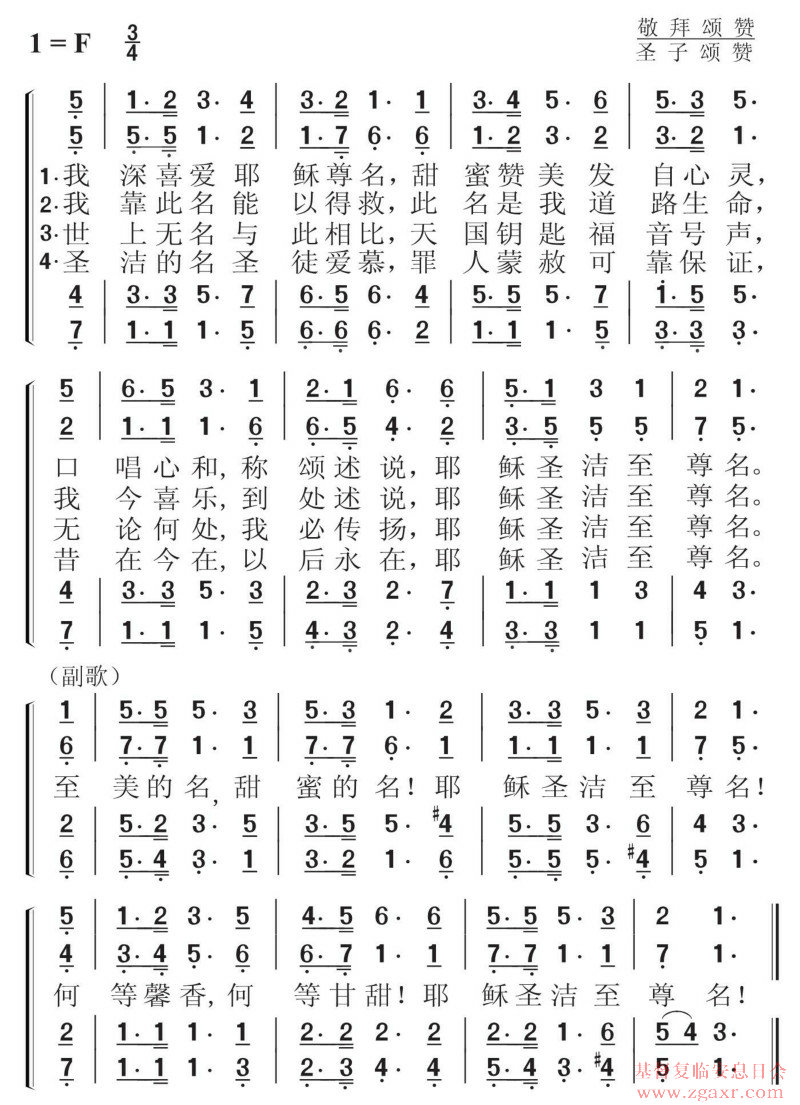 1=F 3/4
敬拜颂赞
圣子颂赞
5 | 1·2 3·4 | 3·2 1·1 | 3·4 5·6 | 5·3 5·
5 | 5·5 1·2 | 1·7 6·6 | 1·2 3·2 | 3·2 1·
1·我 深喜爱耶 稣尊名，甜 蜜赞美发 自心灵，
2·我 靠此名能 以得救，此 名是我道 路生命，
3·世 上无名与 此相比，天 国钥匙福 音号声，
4·圣 洁的名圣 徒爱慕，罪 人蒙赦可 靠保证，
4 | 3·3 5·7 | 6·5 6·4 | 5·5 5·7 | 1·5 5·
7 | 1·1 1·5 | 6·6 6·2 | 1·1 1·5 | 3·3 3·
5 | 6·5 3·1 | 2·1 6·6 | 5·1 3 1 | 2 1·
2 | 1·1 1·6 | 6·5 4·2 | 3·5 5 5 | 7 5·
口 唱心和，称 颂述说，耶 稣圣洁至 尊名。
我 今喜乐，到 处述说，耶 稣圣洁至 尊名。
无 论何处，我 必传扬，耶 稣圣洁至 尊名。
昔 在今在，以 后永在，耶 稣圣洁至 尊名。
4 | 3·3 5·3 | 2·3 2·7 | 1·1 1 3 | 4 3·
7 | 1·1 1·5 | 4·3 2·4 | 3·3 1 1 | 5 1·
（副歌）
1 | 5·5 5·3 | 5·3 1·2 | 3·3 5·3 | 2 1·
6 | 7·7 1·1 | 7·7 6·1 | 1·1 1·1 | 7 5·
至 美的名，甜 蜜的名！耶 稣圣洁至 尊名！
2 | 5·2 3·5 | 3·5 5·#4 | 5·5 3·6 | 4 3·
6 | 5·4 3·1 | 3·2 1·6 | 5·5 5·#4 | 5 1·
5 | 1·2 3·5 | 4·5 6·6 | 5·5 5·3 | 2 1·
4 | 3·4 5·6 | 6·7 1·1 | 7·7 1·1 | 7 1·
何 等馨香，何 等甘甜！耶 稣圣洁至 尊名！
2 | 1·1 1·1 | 2·2 2·2 | 2·2 1·6 | 5 4 3·
7 | 1·1 1·3 | 2·3 4·4 | 5·4 3·#4 | 5 1·
基督复临安息日会
www.zgaxr.com